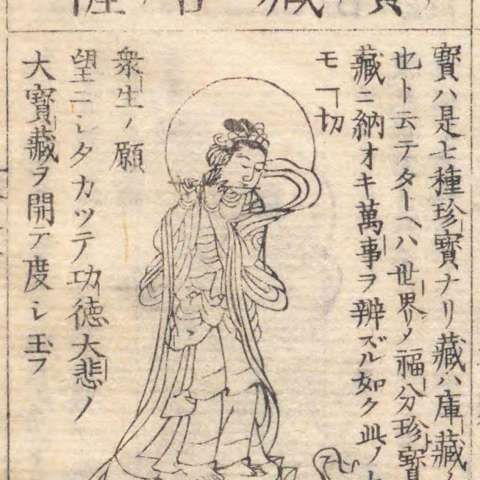 寶藏菩薩
寶ハ是七種珍寶ナリ藏ハ庫藏ノ
也ト云テタトヘハ世界ノ福分珍寶
藏ニ納オキ萬事ヲ辨ズル如ク此ノ
モ一切
衆生ノ願
望ニシタカツテ功德大悲ノ
大寶藏ヲ開テ度シ玉フ